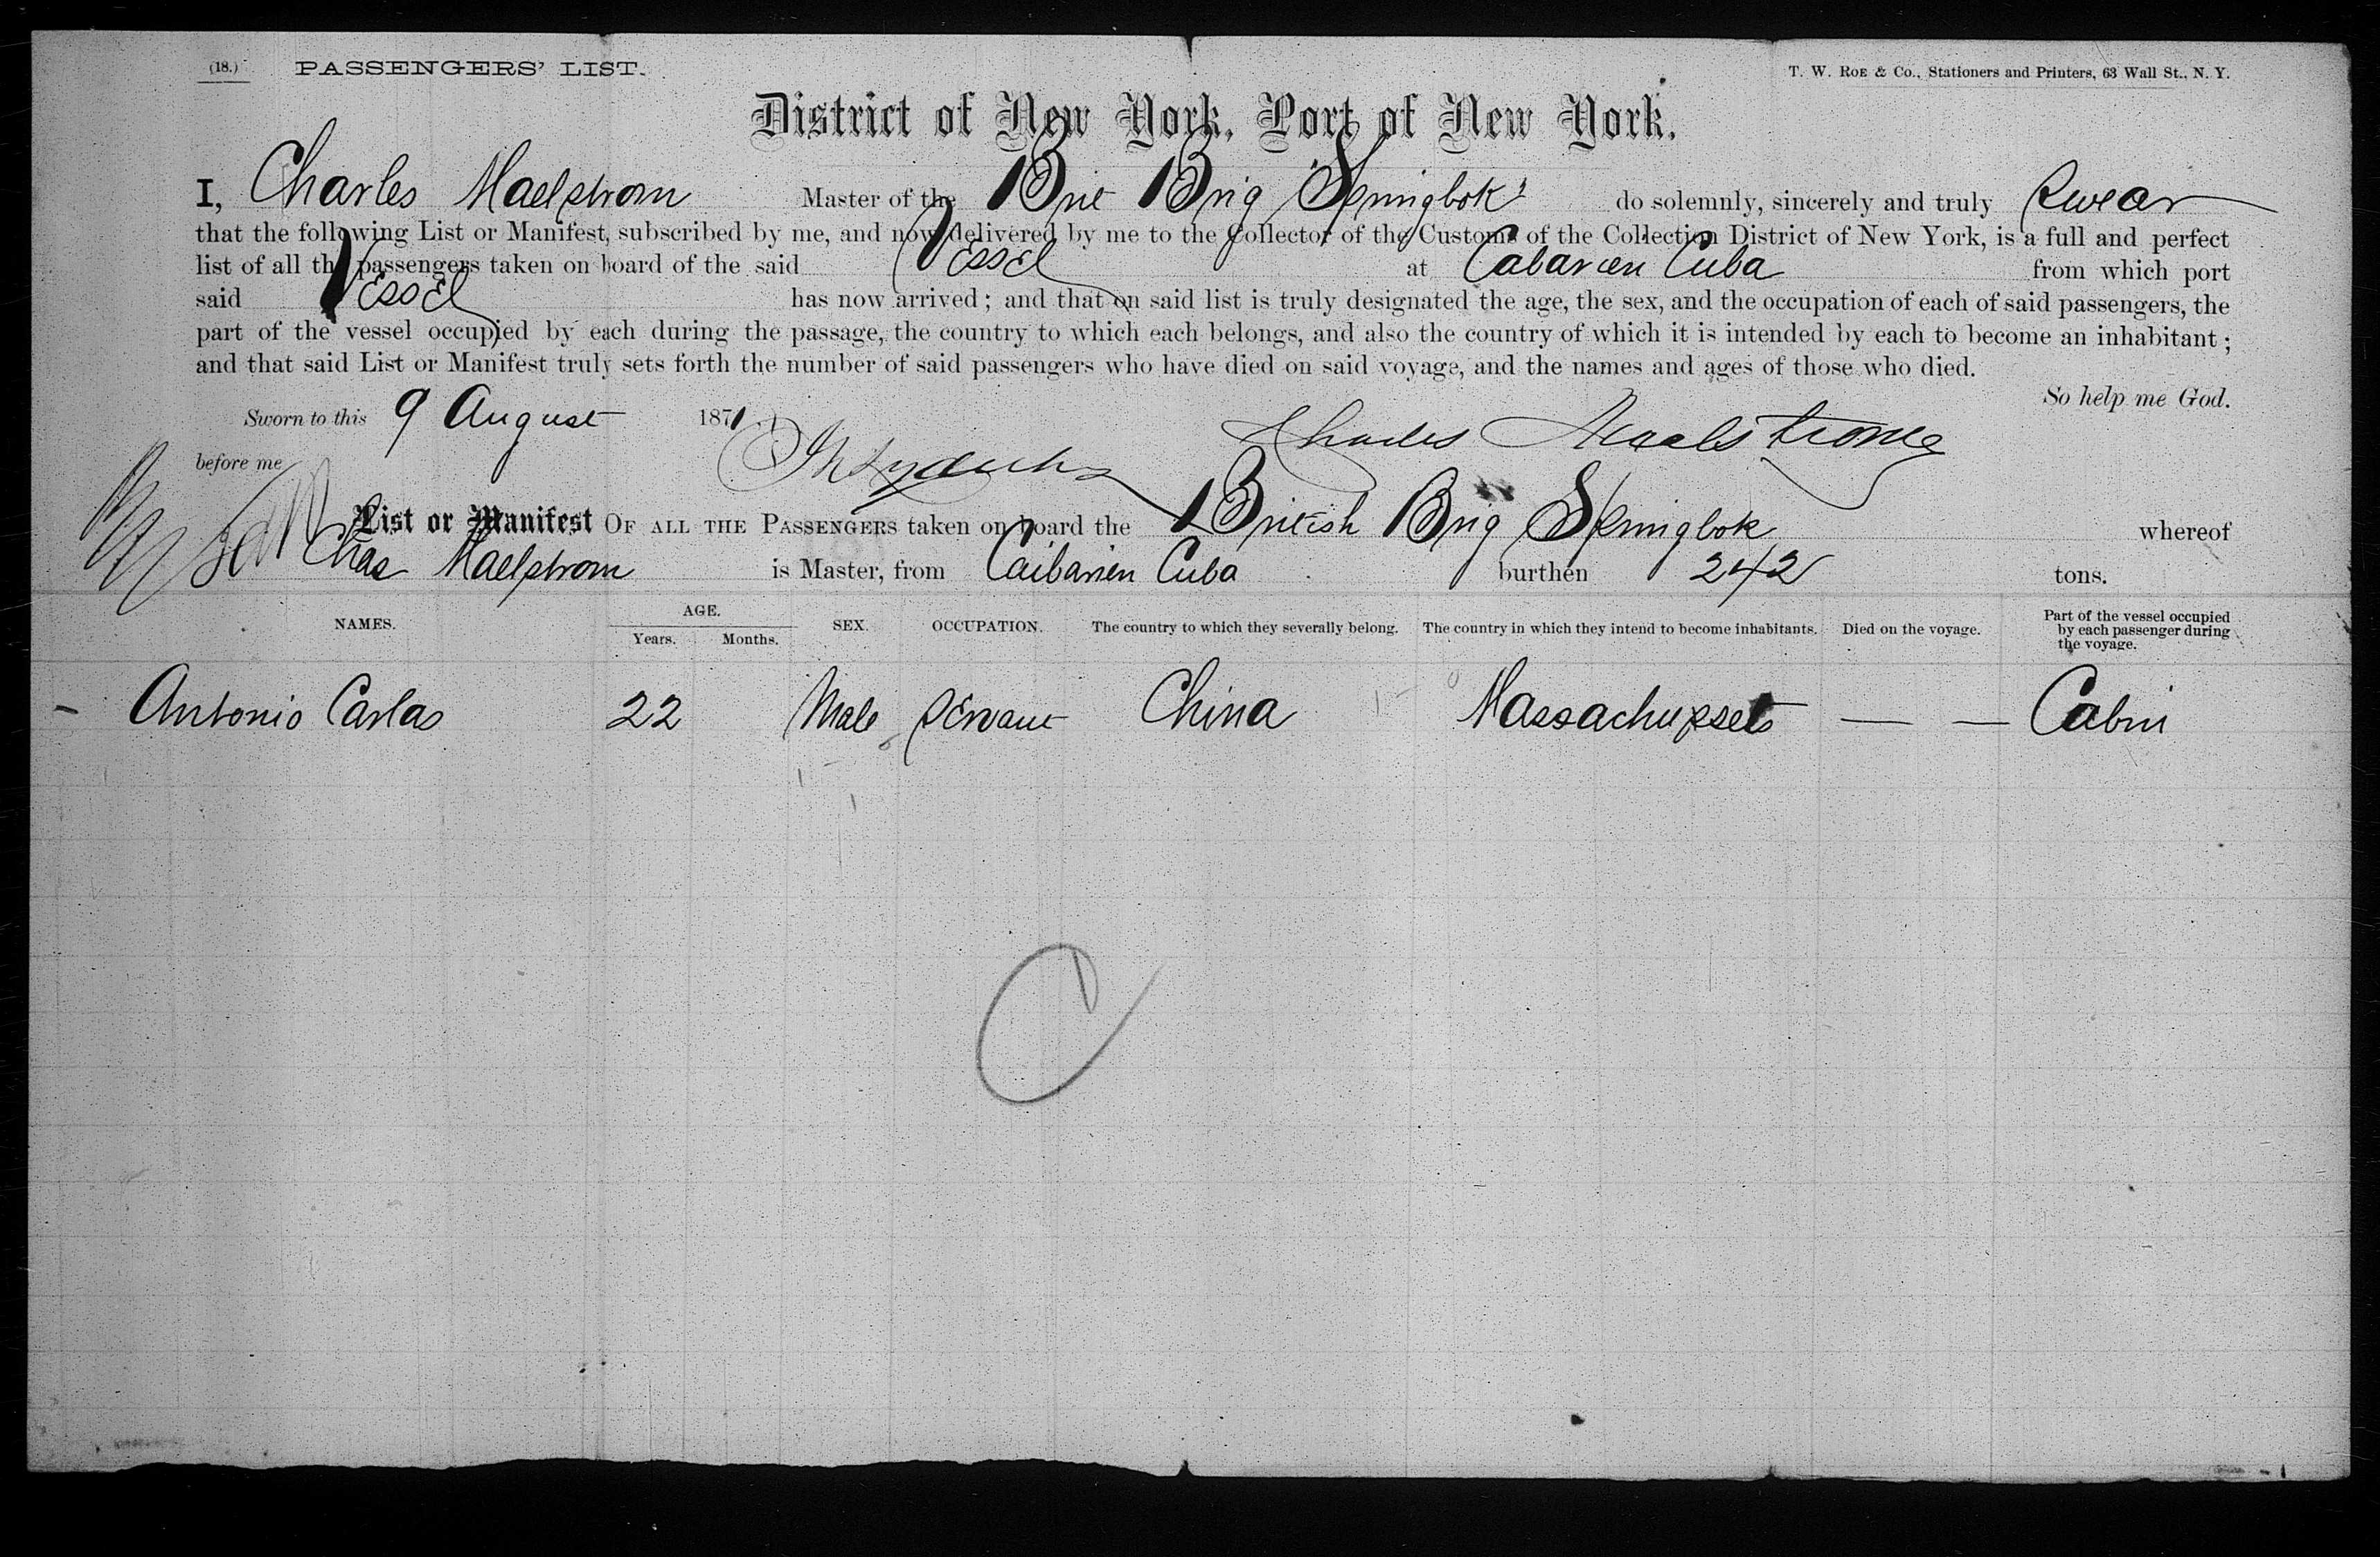 (18.) PASSENGERS' LIST. T. W. ROE & Co., Stationers and Printers, 63 Wall St., N. Y.
District of New York, Port of New York.
I, Charles Maelstrom Master of the Brit Brig "Springbok" do solemnly, sincerely and truly Swear
that the following List or Manifest, subscribed by me, and now delivered by me to the Collector of the Customs of the Collection District of New York, is a full and perfect
list of all the passengers taken on board of the said Vessel at Cabarien Cuba from which port
said Vessel has now arrived; and that on said list is truly designated the age, the sex, and the occupation of each of said passengers, the
part of the vessel occupied by each during the passage, the country to which each belongs, and also the country of which it is intended by each to become an inhabitant;
and that said List or Manifest truly sets forth the number of said passengers who have died on said voyage, and the names and ages of those who died.
So help me God.
Sworn to this 9 August 1871 Charles Maalstrom
before me
List or Manifest OF ALL THE PASSENGERS taken on board the British Brig Springbok whereof
Chas Maelstrom is Master, from Caibarien Cuba burthen 242 tons.
NAMES. AGE. Years. Months. SEX. OCCUPATION. The country to which they severally belong. The country in which they intend to become inhabitants. Died on the voyage. Part of the vessel occupied by each passenger during the voyage.
Antonio Carlas 22 Male Servant China Massachussets — — Cabin
C